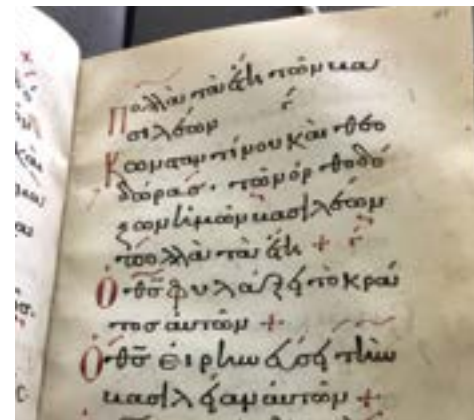 Πολλὰ τὰ ἔτη τῶν βα
σιλέων
Κωνσταντίνου καὶ θεο
δώρας· τῶν ὀρθοδό
ξων ἡμῶν βασιλέων
πολλὰ τὰ ἔτη +
Ὁ θ̅ς̅ φυλάξει τὸ κρά
τος αὐτῶν +
Ὁ θ̅ς̅ εἰρηνεύσει τὴν
βασιλείαν αὐτῶν +